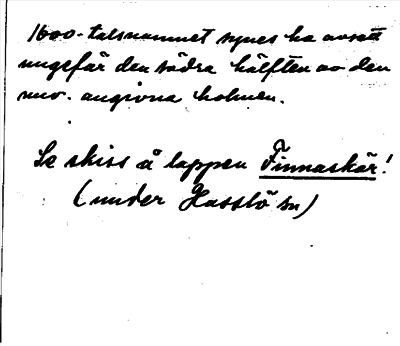 1600-talsnamnet synes ha avsett
ungefär den södra hälften av den
nuv. angivna holmen.
Se skiss å lappen Finnaskär!
(under Hasslö sn)